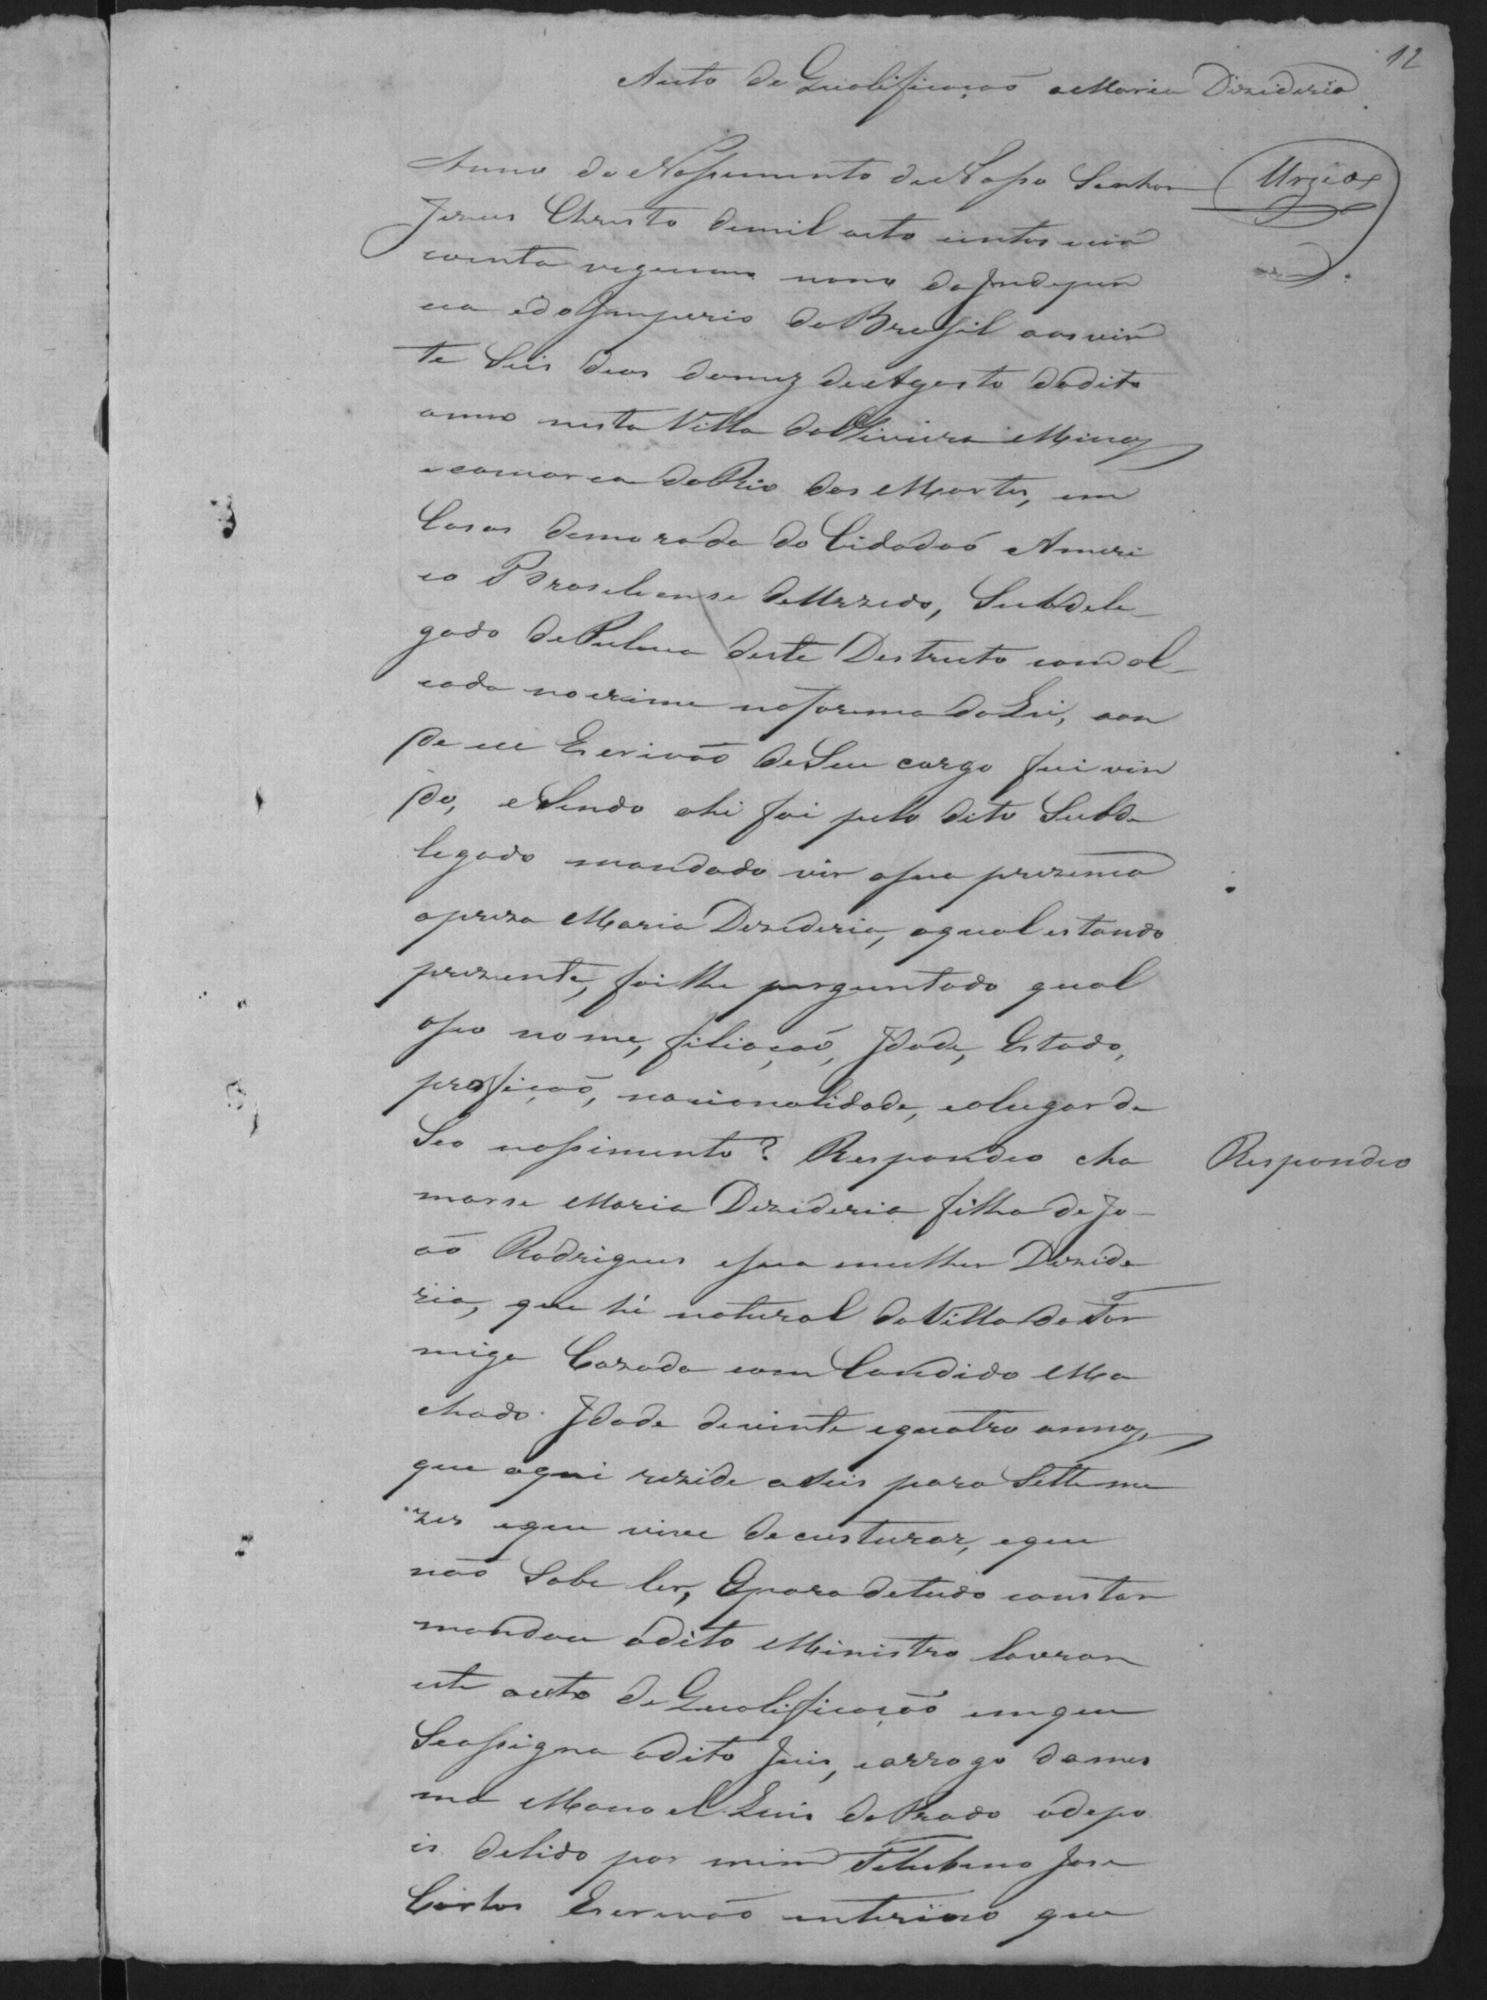 12
Auto de Qualificação a Maria Dizideria
Anno do Nassimento de Nosso Senhor
Urzedo
Jezus Christo de mil oito centos cin
coenta vigesimo nono da Indepen
cia e do Imperio do Brasil aos vin
te Seis dias do mez de Agosto do dito
anno nesta Villa da Oliveira Minas
e comarca do Rio das Mortes, em
Casas de morada do Cidadaõ Ameri
co Brasiliense de Urzedo, Subdele
gado de Pulicia deste Destricto com al
cada no crime na forma da Lei, aon
de eu Escrivaõ de Seu cargo fui vin
do, e Sendo ahi foi pelo dito Subde
legado mandado vir a sua prezença
a preza Maria Dezideria, a qual estando
prezente, foi lhe perguntado qual
o seo nome, filiaçaõ, Idade, Estado,
profiçaõ, nacionalidade, e o lugar de
Seo nassimento? Respondeo cha
Respondeo
marse Maria Dezideria filha de Jo
aõ Rodrigues e sua mulher Dezide
ria, que hé natural da Villa da For
miga Cazada com Candido Ma
chado. Idade de vinte e quatro annos,
que aqui rezide a Seis para Sette me
zes e que vive de custurar, e que
naõ Sabe ler, E para de tudo constar
mandou o dito Ministro lavrar
este auto de Qualificaçaõ em que
Se assigna o dito Juis, e arrogo da mes
ma Manoel Luis do Prado o depo
is de lido por mim Felisbino Jose
Cortes Escrivaõ interino que